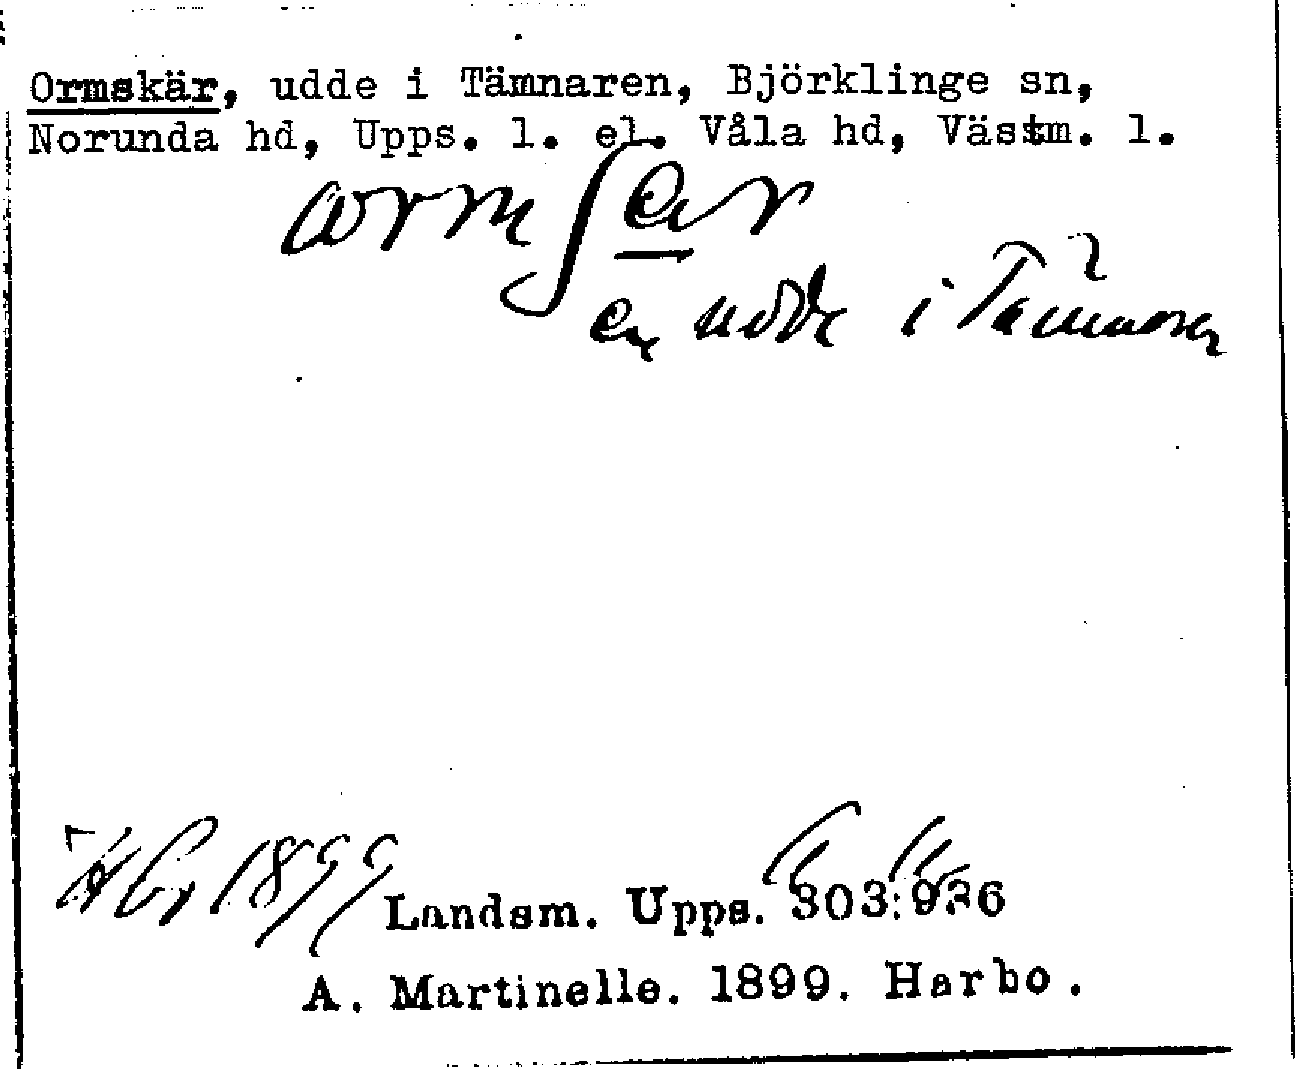 Ormskär, udde i Tämnaren, Björklinge sn,
Norunda hd, Upps. l. el. Våla hd, Västm. l.
en udde i Tämnaren
1899
Landsm. Upps. 303:936
A. Martinelle. 1899. Harbo.